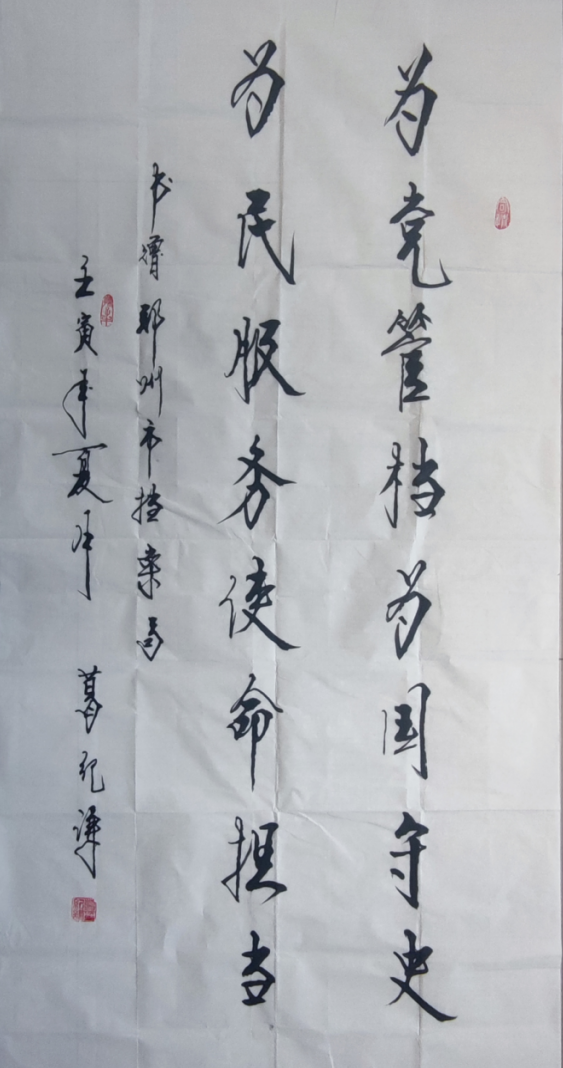 为党管档为国守史
为民服务使命担当
书赠邓州市档案局
壬寅年夏月
葛纪谦